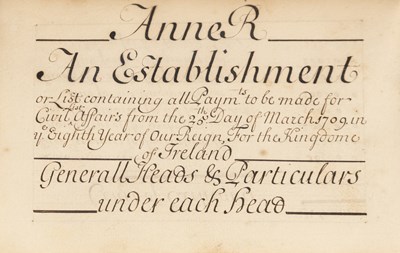 Anne R
An Establishment
or List containing all Paymts to be made for
Civil Affairs from the 25th Day of March 1709 in
ye Eighth Year of Our Reign, For the Kingdome
of Ireland
Generall Heads & Particulars
under each Head